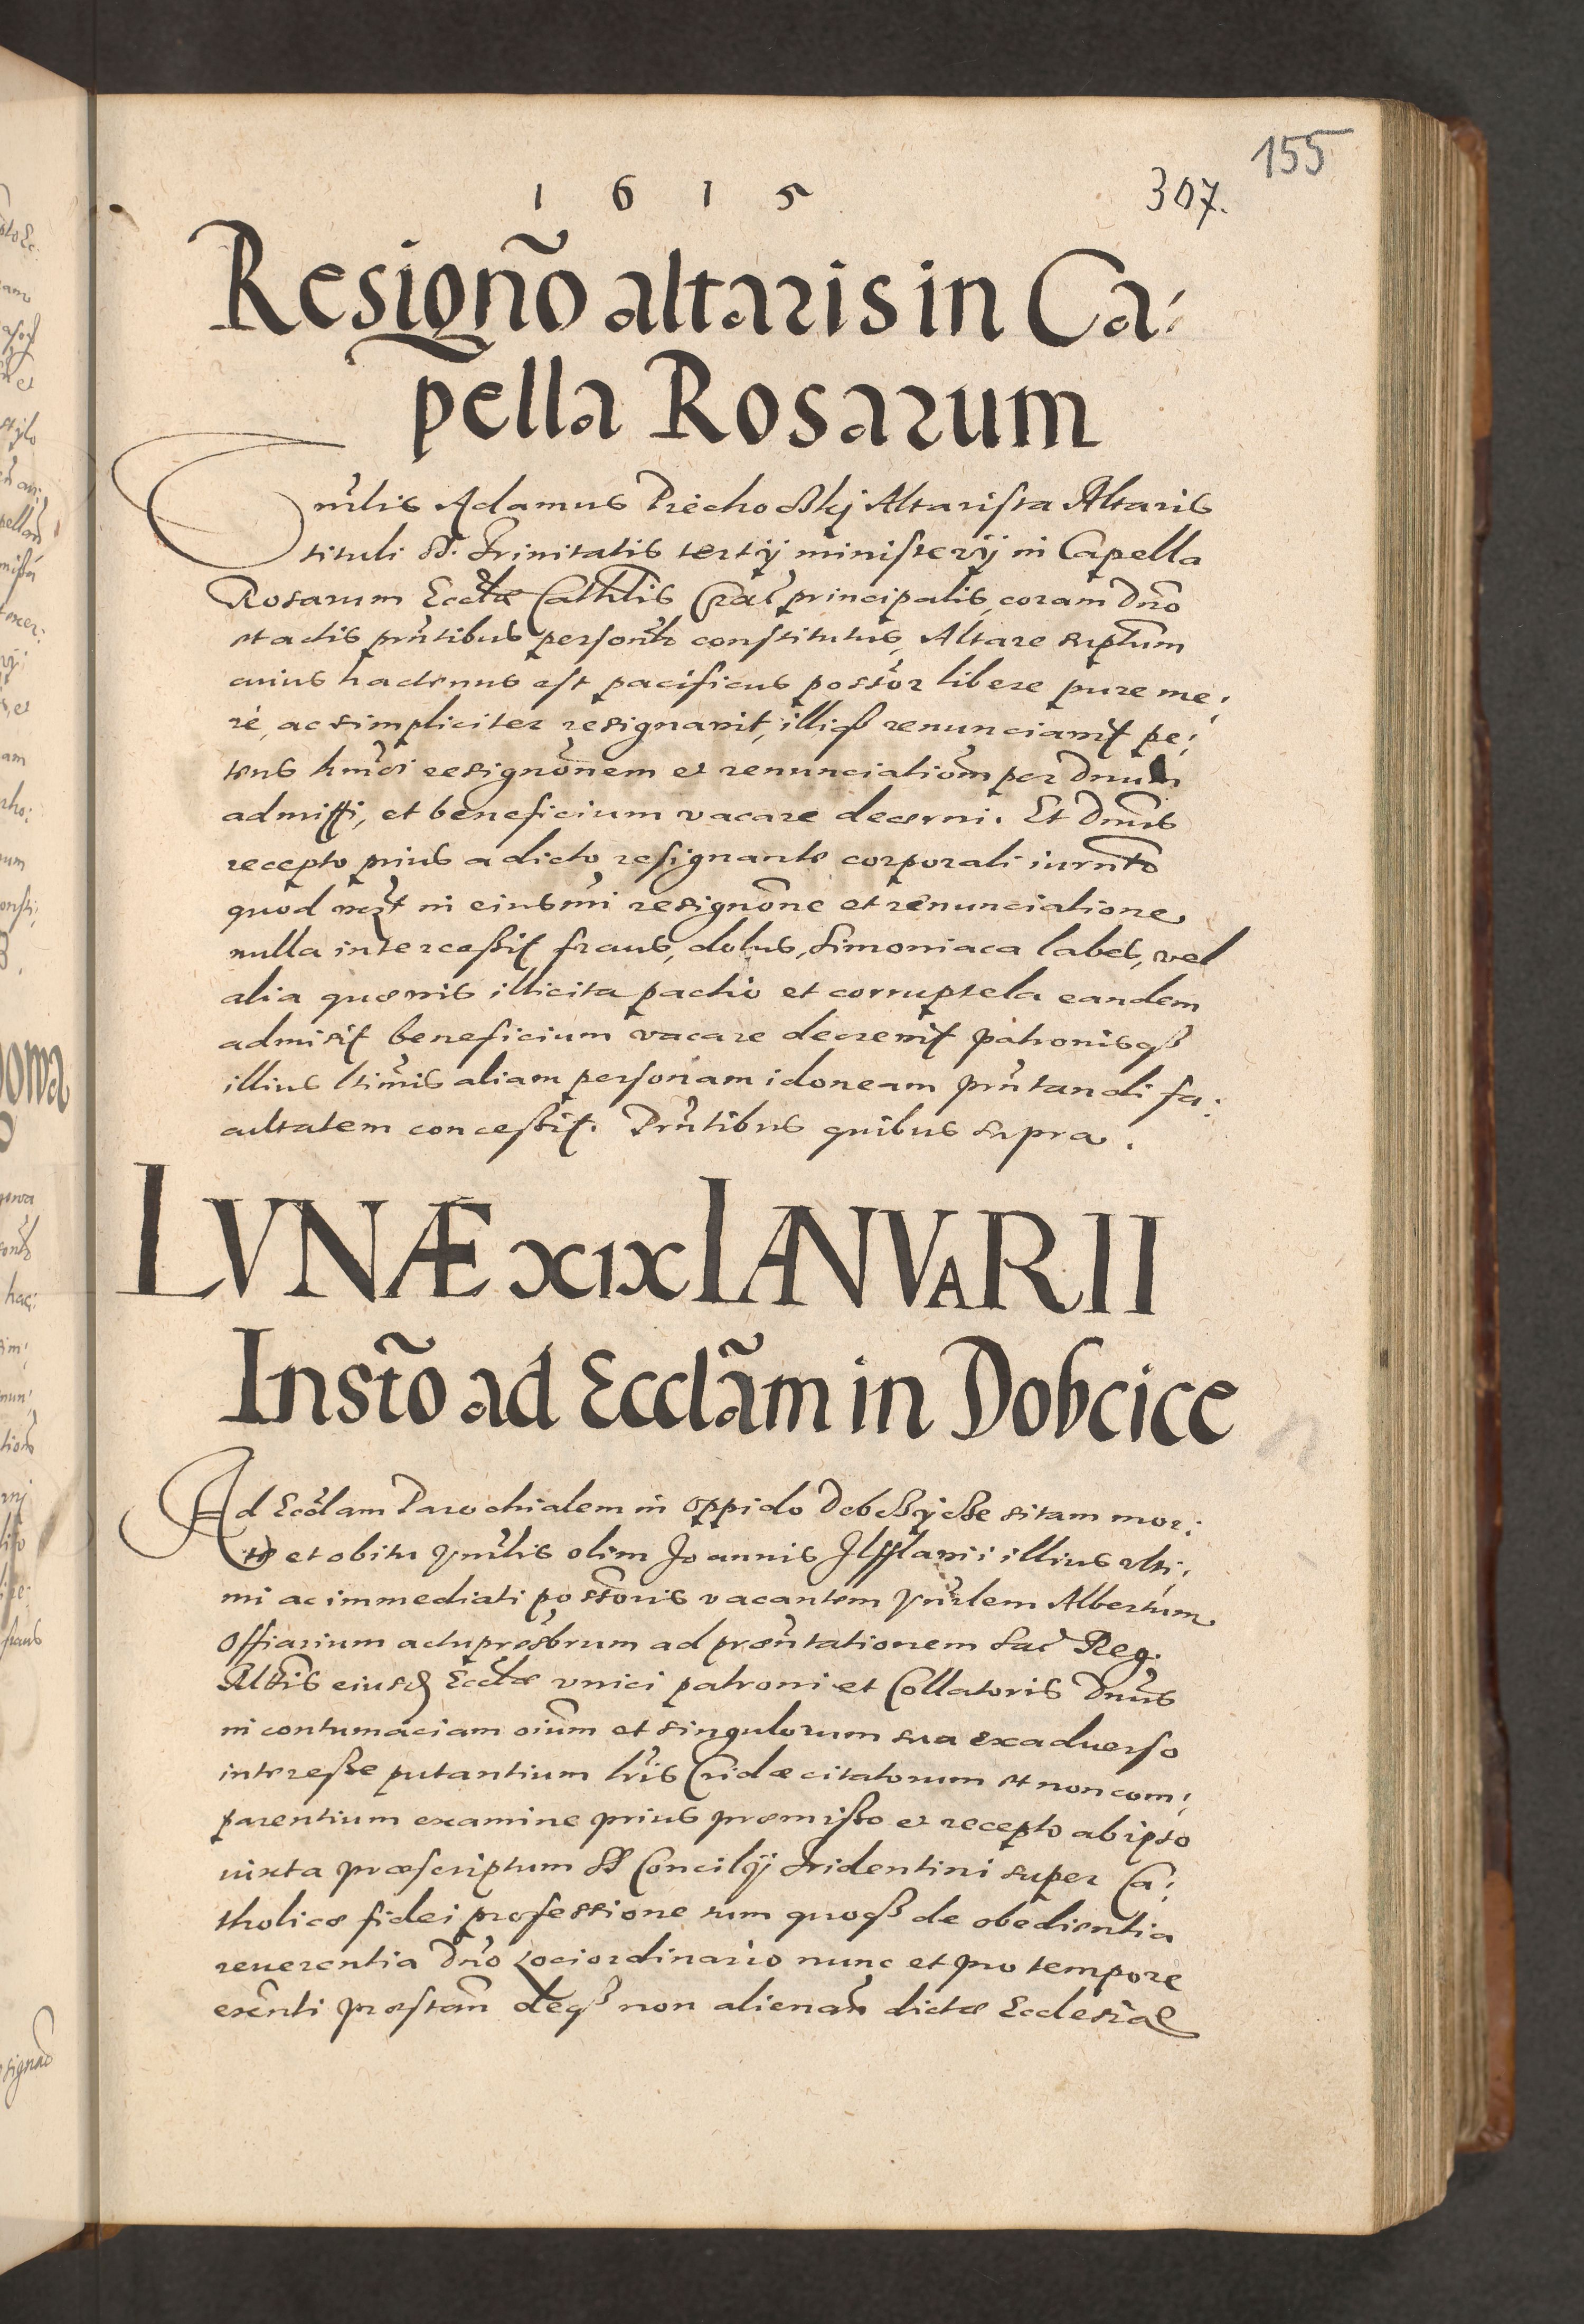 155
1 6 1 5
307.
Resigno altaris in Ca:
pella Rosarum
nrlis Adamus Piechocki Altarista Altaris
tituli SS. Trinitatis tertij ministerij in Capella
Rosarum Ecclae Cathlis Crac principalis, coram Dno
et actis prntibus personlr constitutus, Altare suptum
cuius hactenus est pacificus possor libere pure me:
re, ac simpliciter resignavit, illiq renunciavit pe:
tens hmoi resignonem et renunciationem per Dnum
admitti, et beneficium vacare decerni. Et Dnus
recepto prius a dicto resignante corporali iurnto
quod in eiusmi resignone et renunciatione
nulla intercessit fraus, dolus, simoniaca labes, vel
alia quaevis illicita pactio et corruptela eandem
admisit beneficium vacare decrevit patronisq
illius ltimis aliam personam idoneam prntandi fa:
cultatem concessit. Prntibus quibus supra.
LVNÆ XIX IANVARII
Insto ad Ecclam in Dobcice
Ad Ecclam Parochialem in oppido Dobczycze sitam mor:
te et obitu Vnrlis olim Joannis illius ulti:
mi ac immediati possoris vacantem Vnrlem Albertum
Offiarium actu presbrum ad praentationem Sac Reg.
Mttis eiusd Ecclae unici patroni et Collatoris Dnus
in contumaciam oium et singulorum sua ex adverso
interesse putantium lris Cridae citatorum et non com:
parentium examine prius praemisso et recepto ab ipso
iuxta praescriptum SS Concilij Tridentini super Ca:
tholicae fidei professione tum quoq de obedientia
reverentia Dno Loci ordinario nunc et pro tempore
exnti praestan deq non alienan dictae Ecclesiae